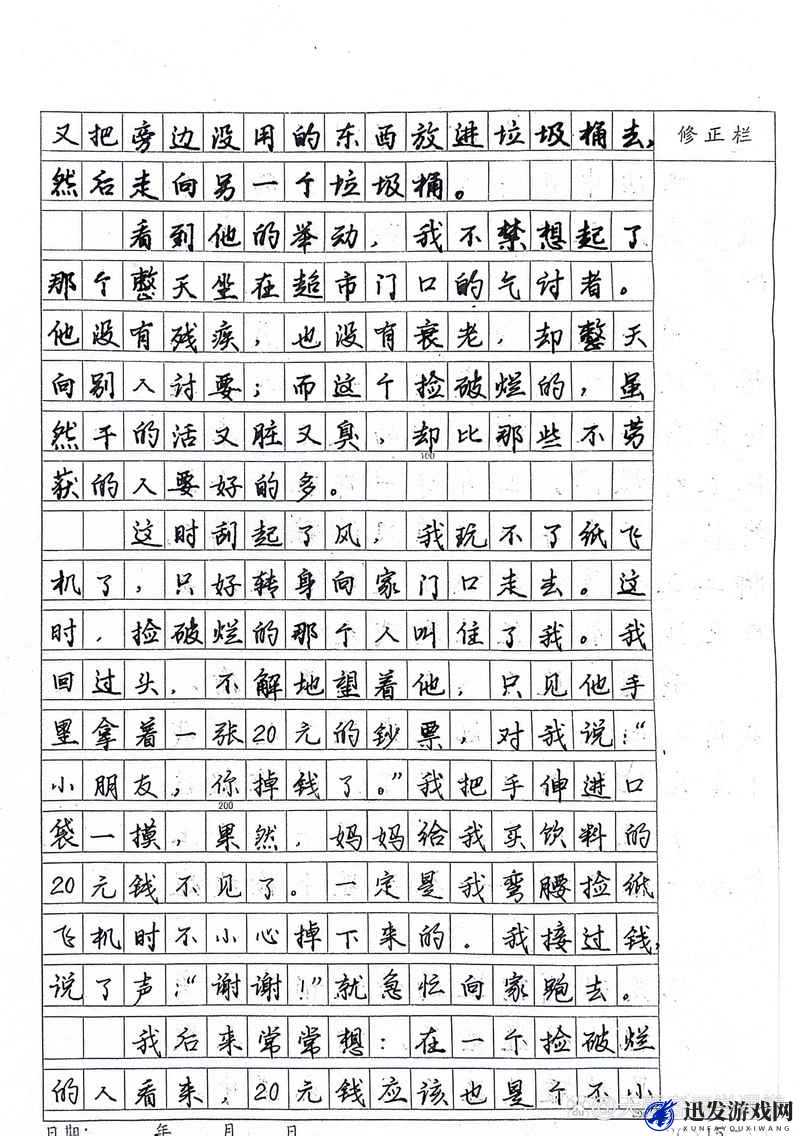 又把旁边没用的东西放进垃圾桶去,
然后走向另一个垃圾桶。
修正栏
看到他的举动,我不禁想起了
那个整天坐在超市门口的气讨者。
他没有残疾,也没有衰老,却整天
向别人讨要;而这个捡破烂的,虽
然干的活又脏又臭,却比那些不劳
160
获的人要好的多。
这时刮起了风,我玩不了纸飞
机了,只好转身向家门口走去。这
时,捡破烂的那个人叫住了我。我
回过头,不解地望着他,只见他手
里拿着一张20元的钞票,对我说:“
小朋友,你掉钱了。”我把手伸进口
200
袋一摸,果然,妈妈给我买饮料的
20元钱不见了。一定是我弯腰捡纸
飞机时不小心掉下来的。我接过钱,
说了声:“谢谢!”就急忙向家跑去。
我后来常常想:在一个捡破烂
的人看来,20元钱应该也是个不小
日期: 年 月 日
迅发游戏网
XUNFAYOUXIWANG